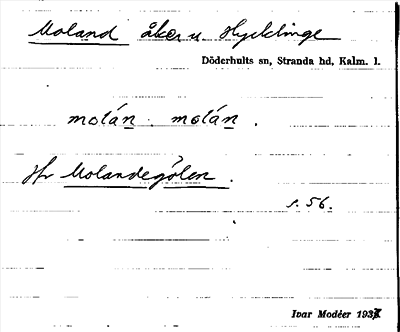 Moland åker u Hycklinge
Döderhults sn, Stranda hd, Kalm. l.
molán. molán.
Jfr Molandegölen.
s. 56.
Ivar Modéer 193